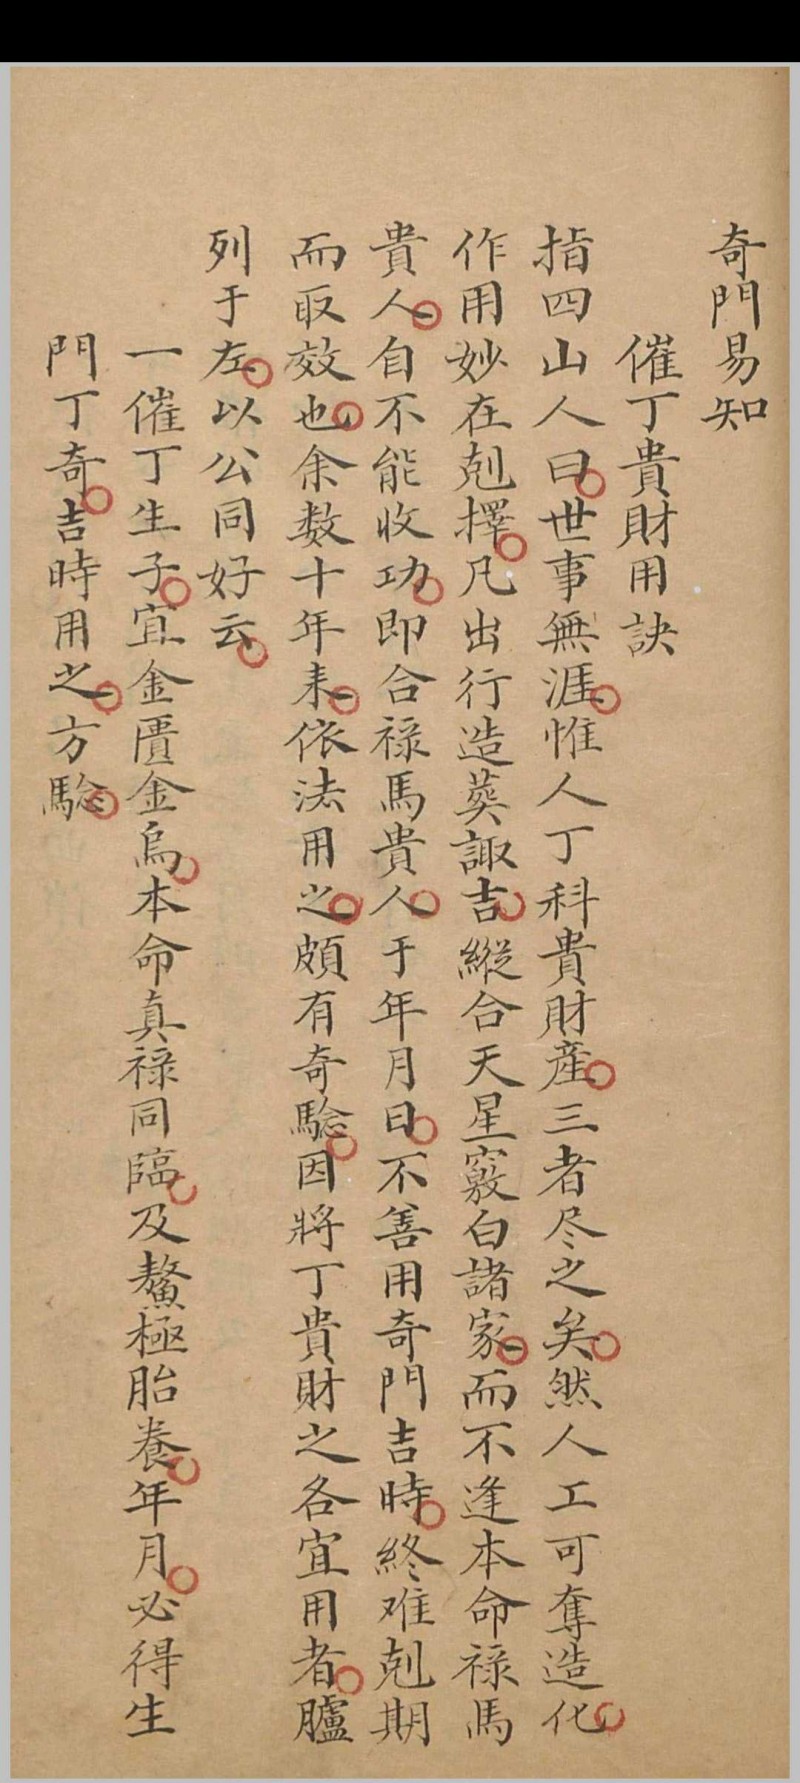 奇門易知
催丁貴財用訣
指四山人曰世事無涯惟人丁科貴財產三者尽之矣然人工可奪造化
作用妙在剋擇凡出行造葬諏吉縱合天星竅白諸家而不逢本命祿馬
貴人自不能收功即合祿馬貴人于年月日不善用奇門吉時終难剋期
而取效也余数十年来依法用之頗有奇騐因將丁貴財之各宜用者臚
列于左以公同好云
一催丁生子宜金匱金烏本命真祿同臨及鰲極胎養年月必得生
門丁奇吉時用之方騐